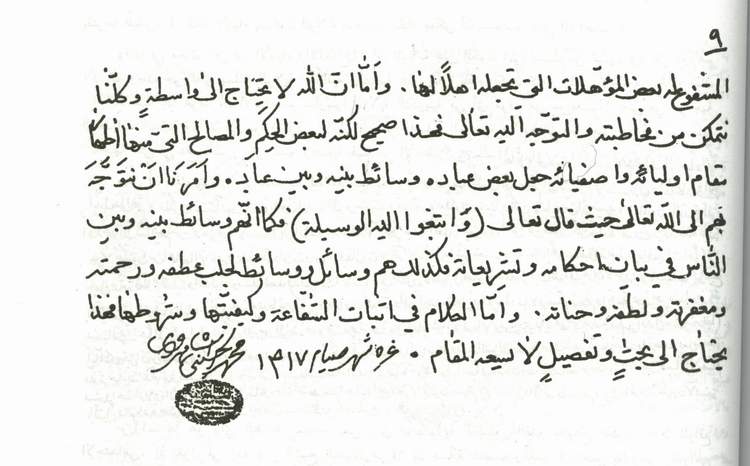 ٩
المشفوع له بعض المؤهلات التى تجعله اهلاً لها . وأمّا انّ اللّٰه لا يحتاج الى واسطةٍ وكلّنا
نتمكن من مخاطبته والتوجّه اليه تعالى فهذا صحيح لكنّه لبعض الحِكَم والمصالح التى منها اظهار
مقام اوليائه واصفيائه جعل بعض عباده وسائط بينه وبين عباده وأمَرَنا انْ نتوجَّهَ
بهم الى اللّٰه تعالىٰ حيث قال تعالى (وَابتغوا اليه الوسيلة) فكما انّهم وسائط بينه وبين
النّاس فى بيان احكامه وتشريعاته فكذلك هم وسائل ووسائط لجلب عطفه ورحمته
ومغفرته ولطفه وحنانه . وأمّا الكلام فى اثبات الشّفاعة وكيفيّتها وشروطها فهذا
يحتاج الى بحثٍ وتفصيلٍ لا يسعه المقام . غرة شهر صيام ١٤١٧